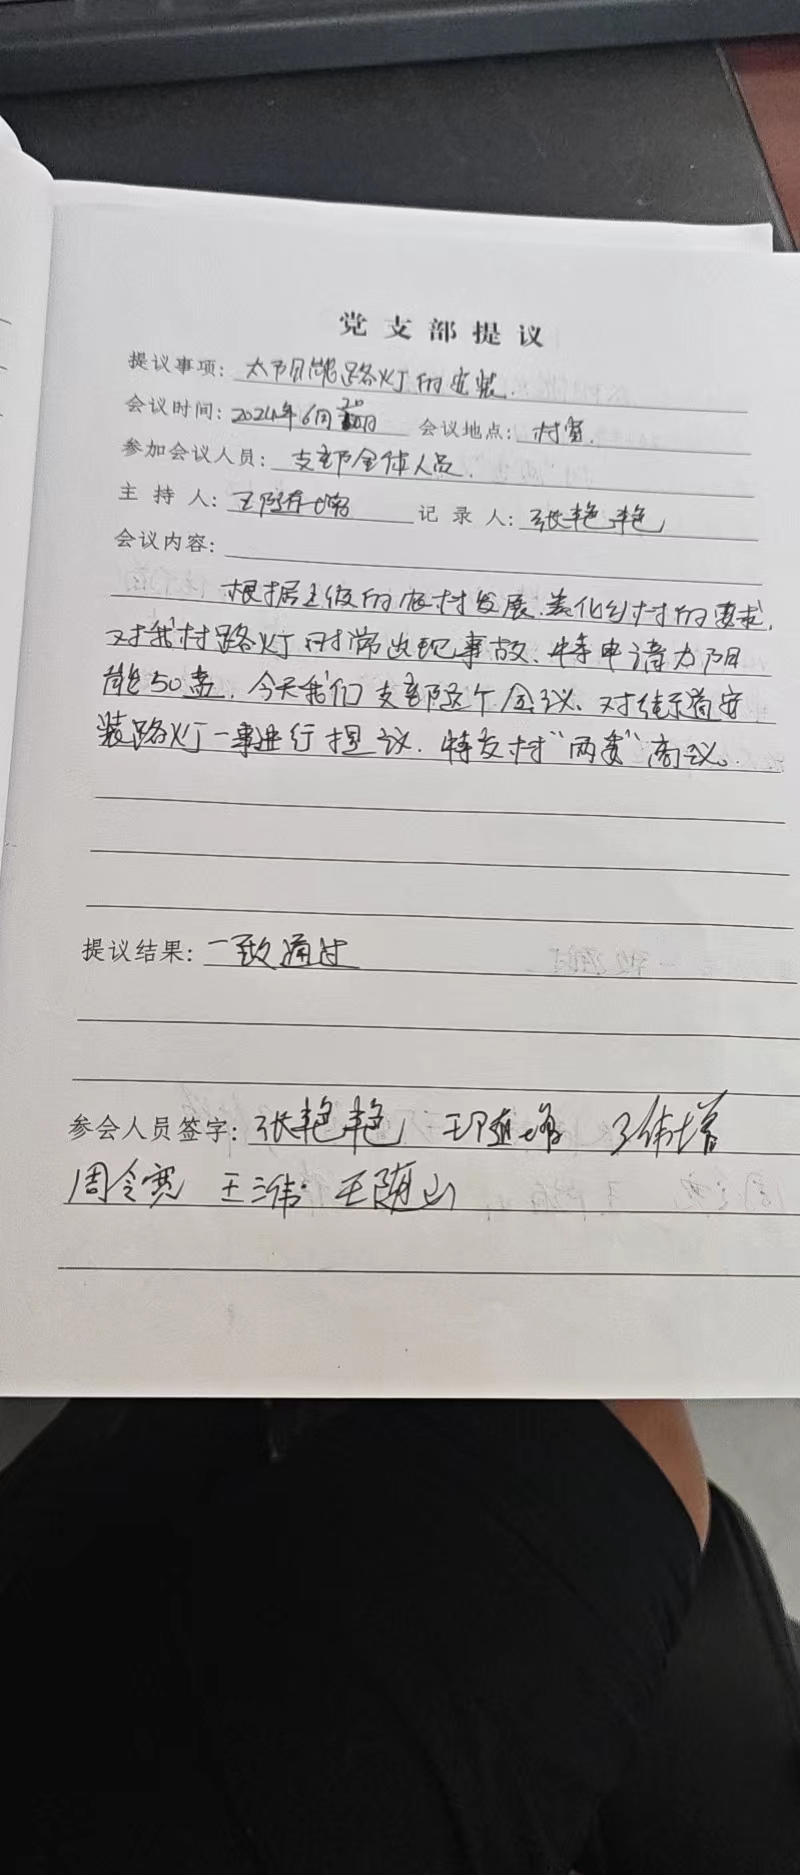 党支部提议
提议事项：太阳能路灯的安装.
会议时间：2024年6月20日 会议地点：村室.
参加会议人员：支部全体人员.
主持人：王随增 记录人：张艳艳
会议内容：
根据上级的农村发展.美化乡村的要求.
对我村路灯时常出现事故、特申请太阳
能50盏.今天我们支部这个会议、对
装路灯一事进行提议.特交村“两委”商议。
提议结果：一致通过
参会人员签字：张艳艳 王随增 王伟增
周令宽 王三伟 王随山